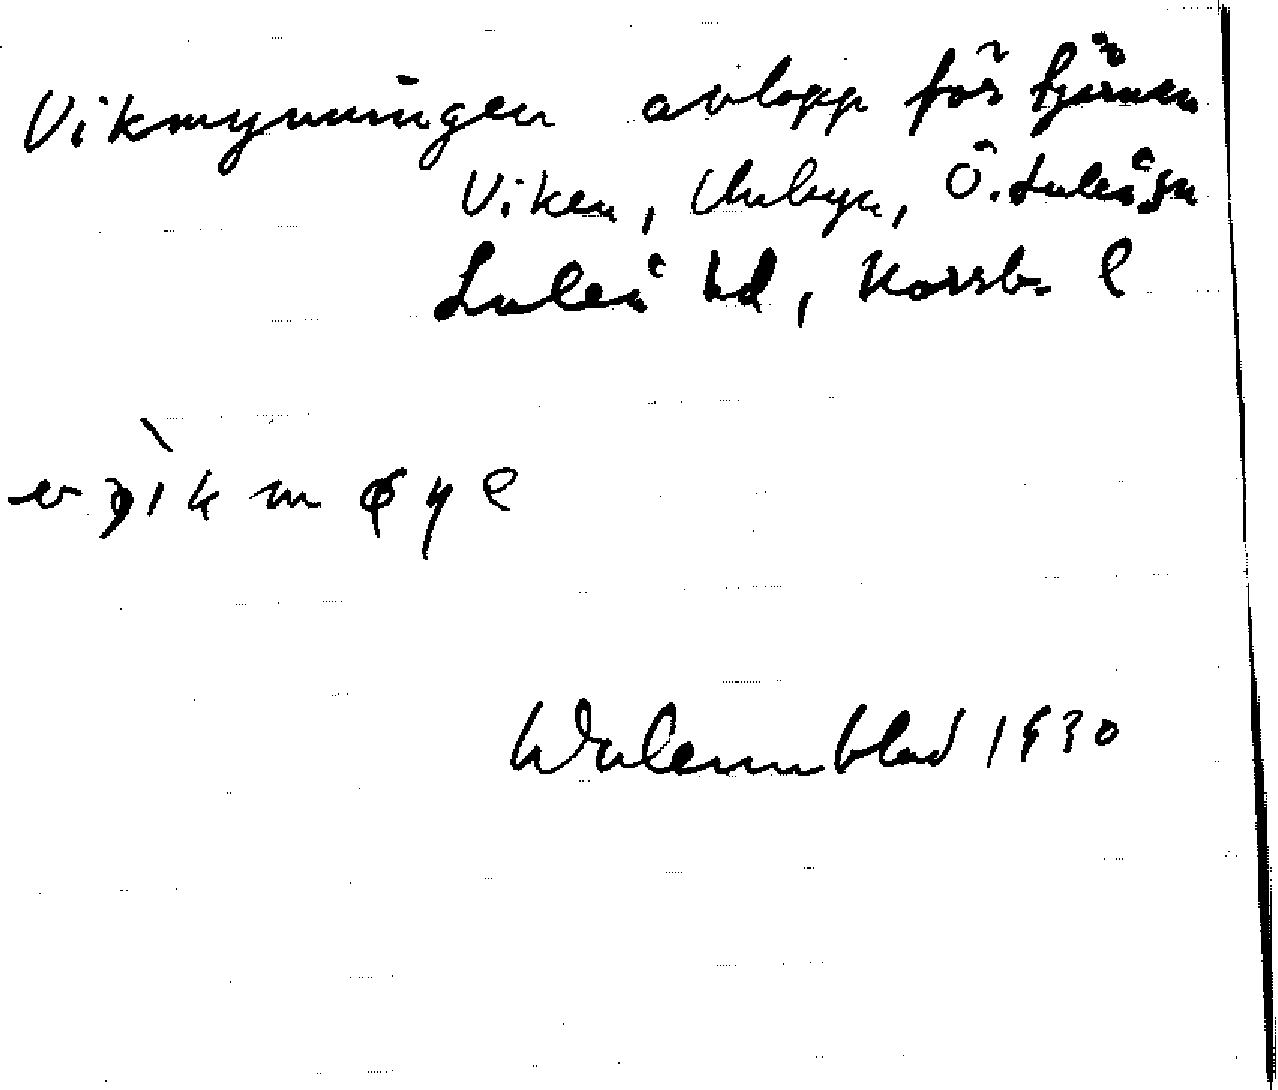 Vikmynningen avlopp för tjärnen
Viken, Unbyn, Ö. Luleå sn
Luleå hd, Norrb. l
Walennblad 1930